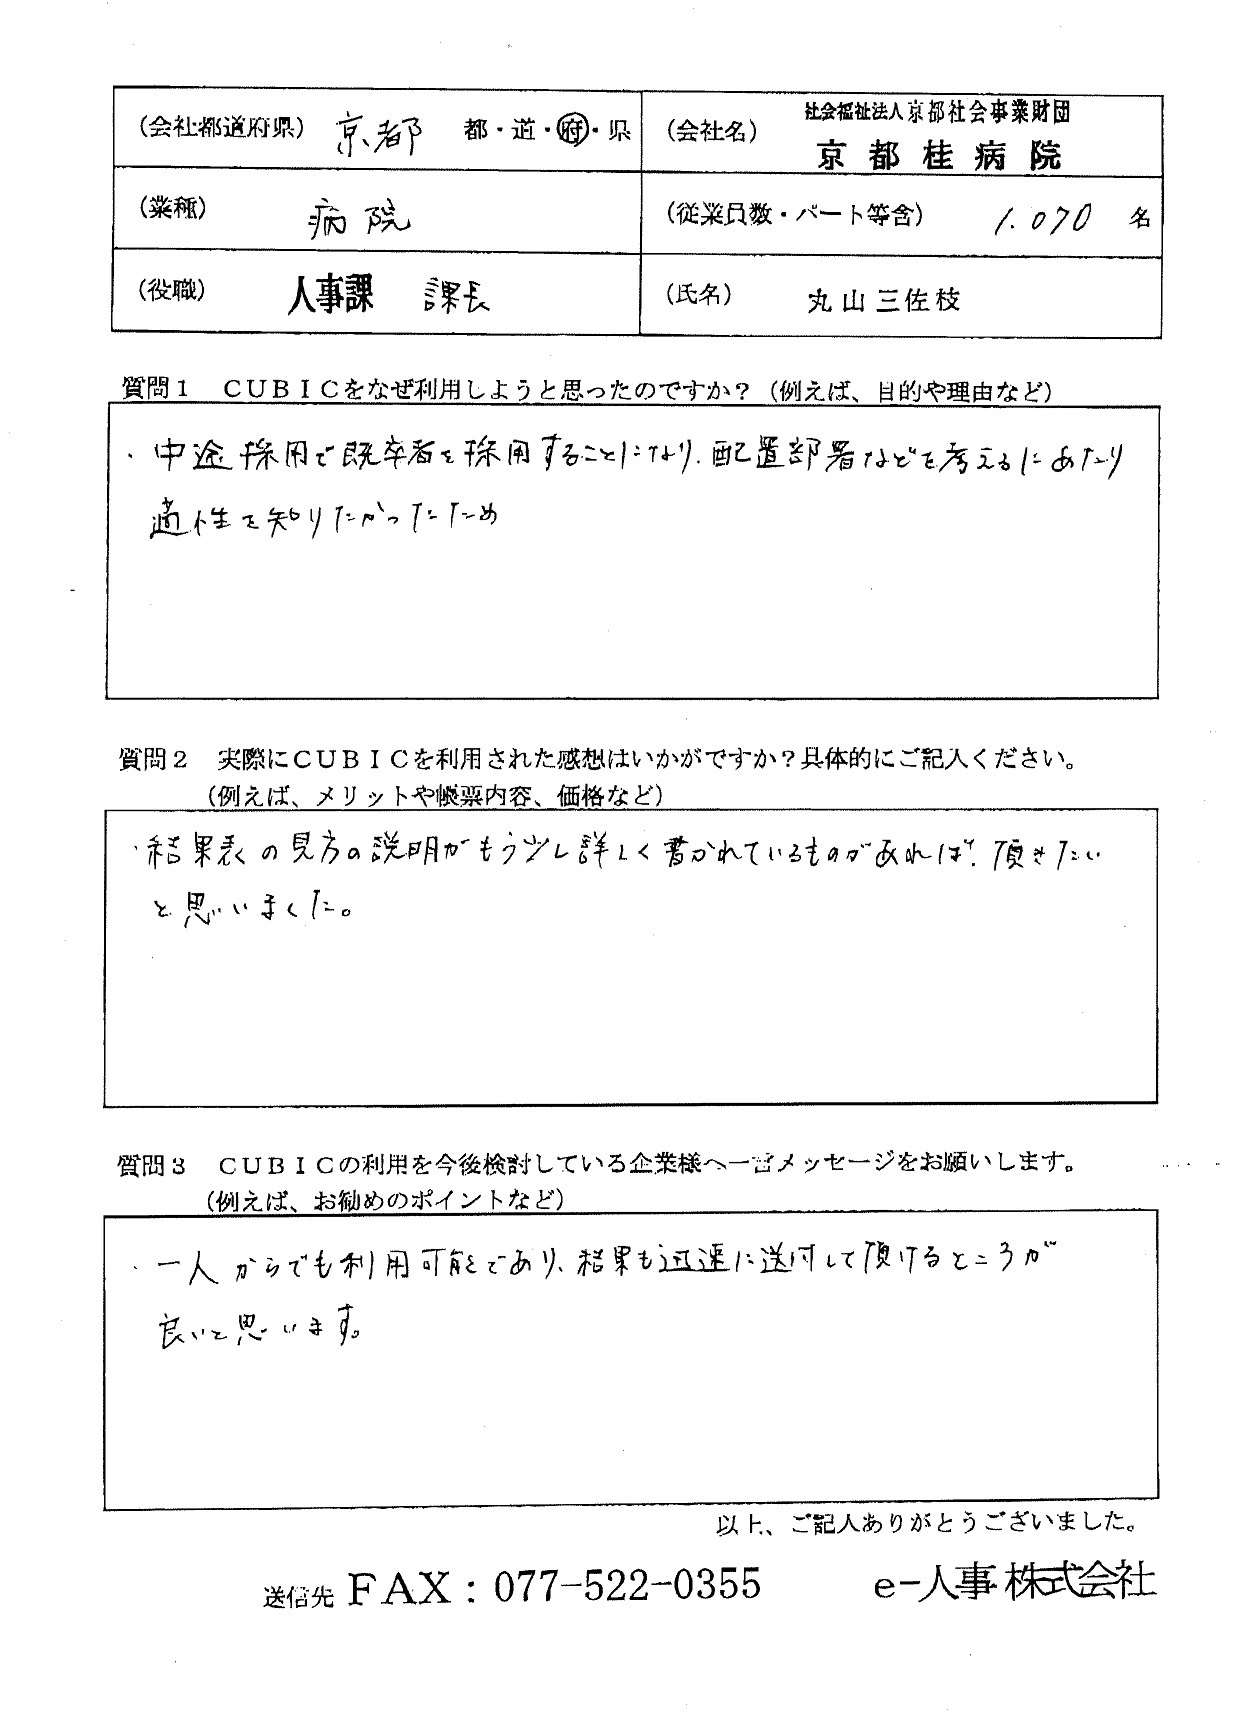 (会社都道府県) 京都 都・道・府・県 (会社名) 社会福祉法人京都社会事業財団
京都桂病院
(業種) 病院 (従業員数・パート等含) 1.070 名
(役職) 人事課 課長 (氏名) 丸山三佐枝
質問1 CUBICをなぜ利用しようと思ったのですか?(例えば、目的や理由など)
・中途採用で既卒者を採用することになり、配置部署などを考えるにあたり
適性を知りたかったため
質問2 実際にCUBICを利用された感想はいかがですか?具体的にご記入ください。
(例えば、メリットや帳票内容、価格など)
・結果表の見方の説明がもう少し詳しく書かれているものがあれば、頂きたい
と思いました。
質問3 CUBICの利用を今後検討している企業様へ一言メッセージをお願いします。
(例えば、お勧めのポイントなど)
・一人からでも利用可能であり、結果も迅速に送付して頂けるところが
良いと思います。
以上、ご記入ありがとうございました。
送信先 FAX:077-522-0355 e-人事株式会社